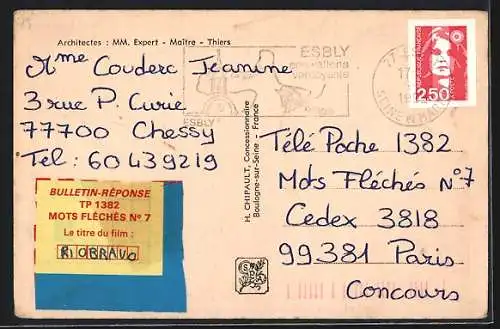 Architectes : MM. Expert - Maître - Thiers
ESBLY
ESBLY
REPUBLIQUE FRANÇAISE
2,50
17
SEINE
Mme Couderc Jeanine
3 rue P. Curie
77700 Chessy
Tel : 60 43 92 19
H. CHIPAULT, Concessionnaire
Boulogne-sur-Seine - France
Télé Poche 1382
Mots Fléchés n°7
Cedex 3818
99381 Paris
Concours
BULLETIN-RÉPONSE
TP 1382
MOTS FLÉCHÉS N° 7
Le titre du film :
RIOBRAVO